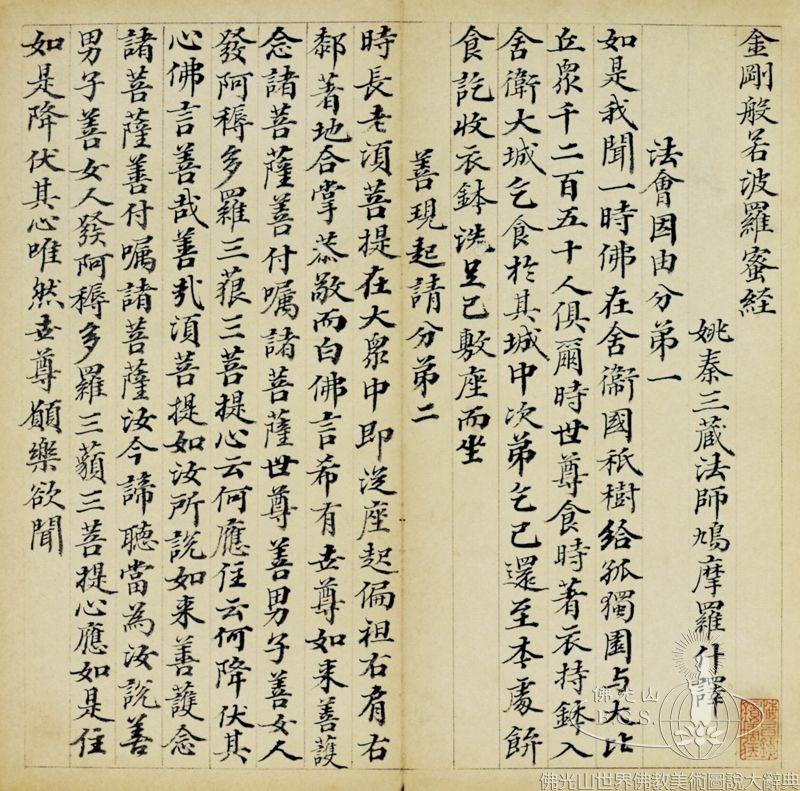 金剛般若波羅蜜経
姚秦三藏法師鳩摩羅什譯
法會因由分第一
如是我聞一時佛在舍衛國祇樹給孤獨園与大比
丘衆千二百五十人俱爾時世尊食時著衣持鉢入
舍衛大城乞食於其城中次第乞已還至本處飰
食訖收衣鉢洗足已敷座而坐
善現起請分第二
時長老湏菩提在大衆中即從座起偏袒右肩右
膝著地合掌恭敬而白佛言希有世尊如来善護
念諸菩薩善付囑諸菩薩世尊善男子善女人
發阿耨多羅三藐三菩提心云何應住云何降伏其
心佛言善哉善哉湏菩提如汝所說如来善護念
諸菩薩善付囑諸菩薩汝今諦聽當為汝說善
男子善女人發阿耨多羅三藐三菩提心應如是住
如是降伏其心唯然世尊願樂欲聞
佛光山
F.G.S.
佛光山世界佛教美術圖說大辭典